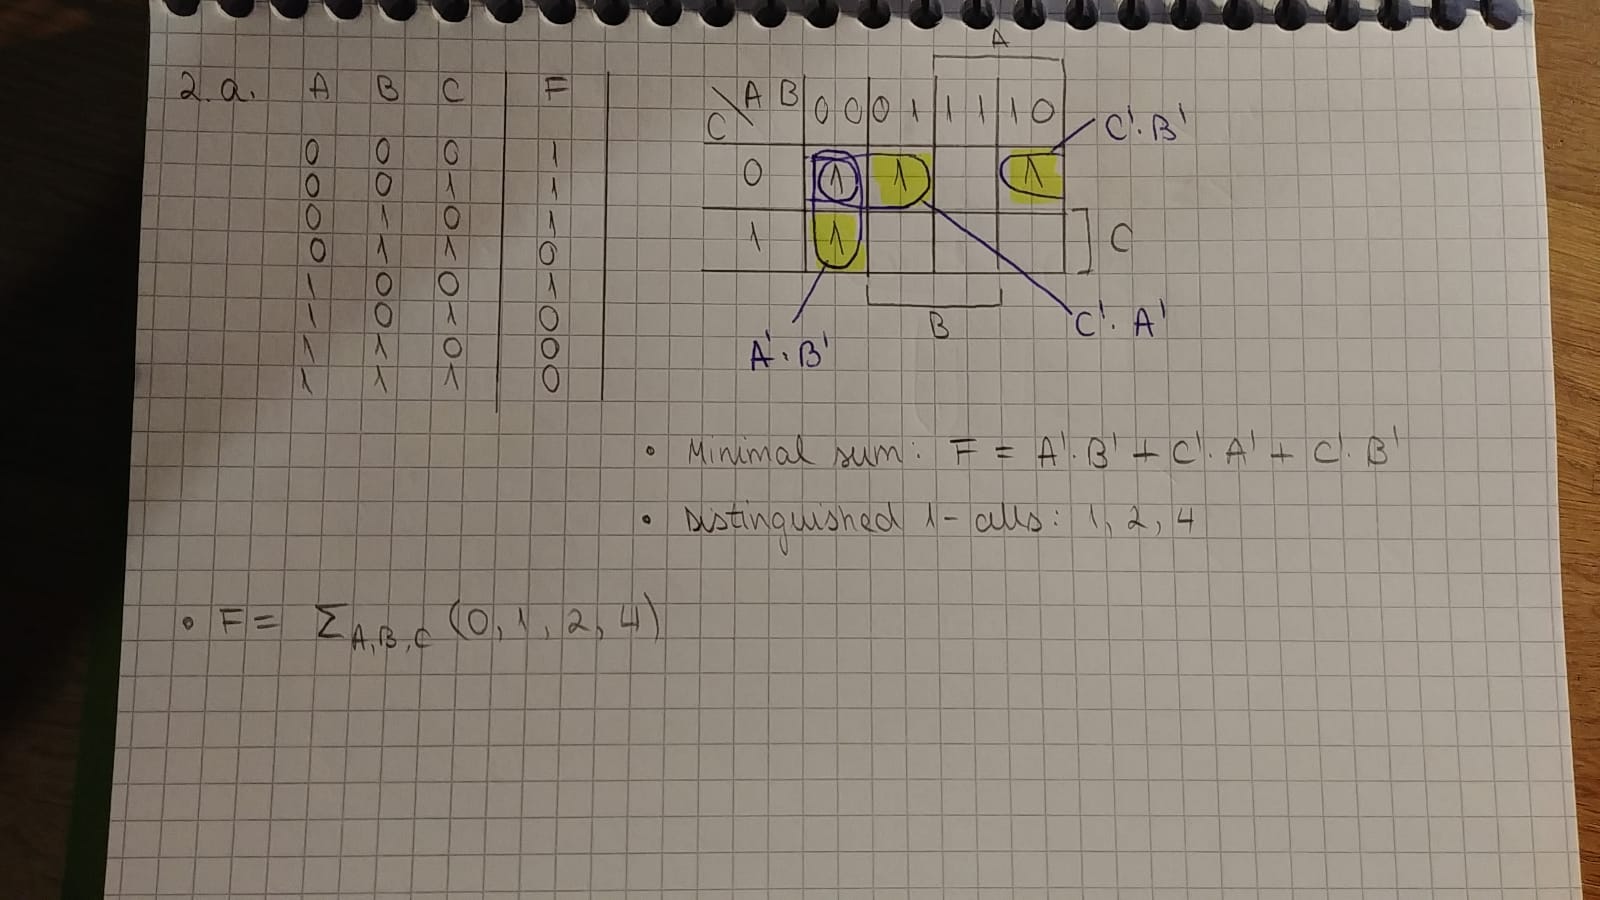 2.a. A B C F
0 0 0 1
0 0 1 1
0 1 0 1
0 1 1 0
1 0 0 1
1 0 1 0
1 1 0 0
1 1 1 0
A
A B 00 01 11 10
C
C'·B'
0 1 1 1
1 1
C
B
C'·A'
A'·B'
• Minimal sum: F = A'·B' + C'·A' + C'·B'
• Distinguished 1-cells: 1, 2, 4
• F = Σ A,B,C (0, 1, 2, 4)